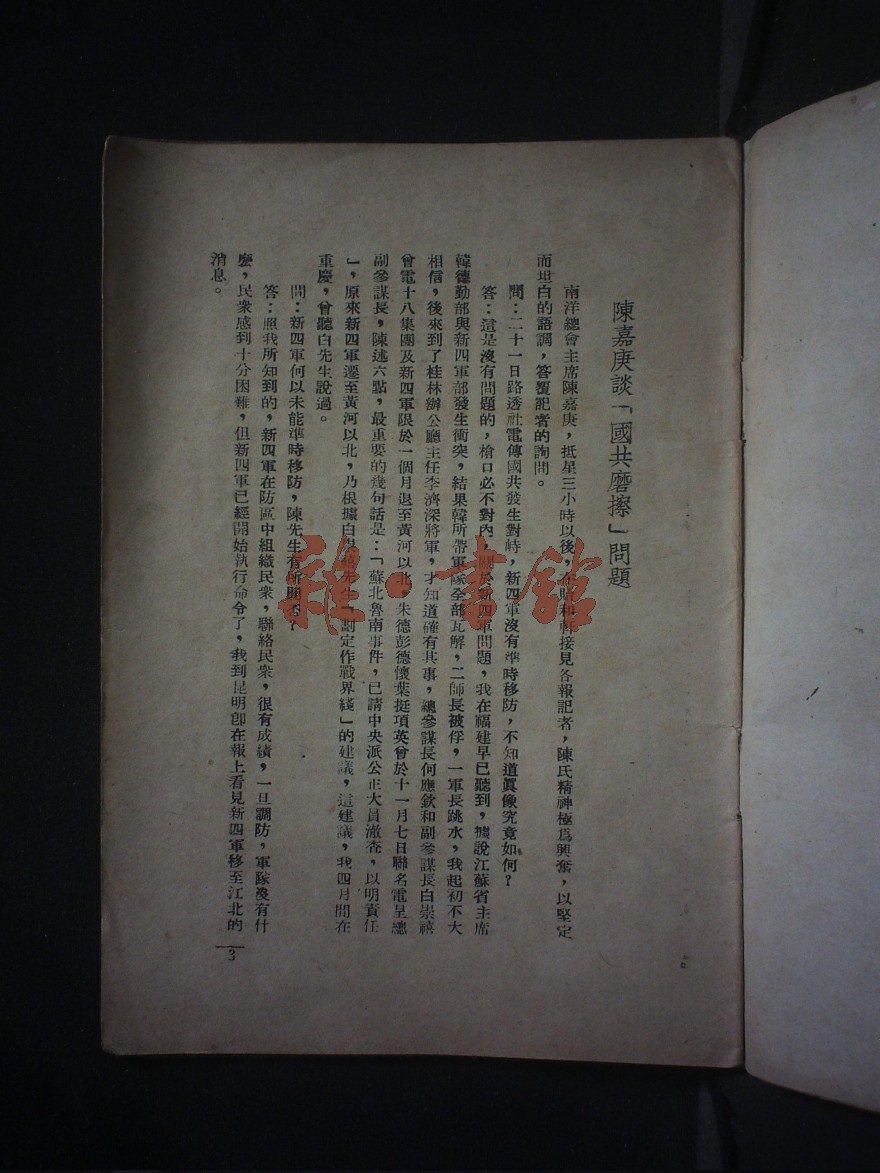 陳嘉庚談「國共磨擦」問題
南洋總會主席陳嘉庚，抵星三小時以後，在賬和軒接見各報記者，陳氏精神極爲興奮，以堅定
而坦白的語調，答覆記者的詢問。
問：二十一日路透社電傳國共發生對峙，新四軍沒有準時移防，不知道眞像究竟如何？
答：這是沒有問題的，槍口必不對內，關於新四軍問題，我在福建早已聽到，據說江蘇省主席
韓德勤部與新四軍部發生衝突，結果韓所帶軍隊全部瓦解，二師長被俘，一軍長跳水，我起初不大
相信，後來到了桂林辦公廳主任李濟深將軍，才知道確有其事，總參謀長何應欽和副參謀長白崇禧
曾電十八集團及新四軍限於一個月退至黃河以北，朱德彭德懷葉挺項英曾於十一月七日聯名電呈總
副參謀長，陳述六點，最重要的幾句話是：「蘇北魯南事件，已請中央派公正大員澈查，以明責任
」，原來新四軍遷至黃河以北，乃根據白崇禧先生「劃定作戰界綫」的建議，這建議，我四月間在
重慶，曾聽白先生說過。
問：新四軍何以未能準時移防，陳先生有所聞否？
答：照我所知到的，新四軍在防區中組織民衆，聯絡民衆，很有成績，一旦調防，軍隊沒有什
麽，民衆感到十分困難，但新四軍已經開始執行命令了，我到昆明卽在報上看見新四軍移至江北的
消息。
3
雜·書館